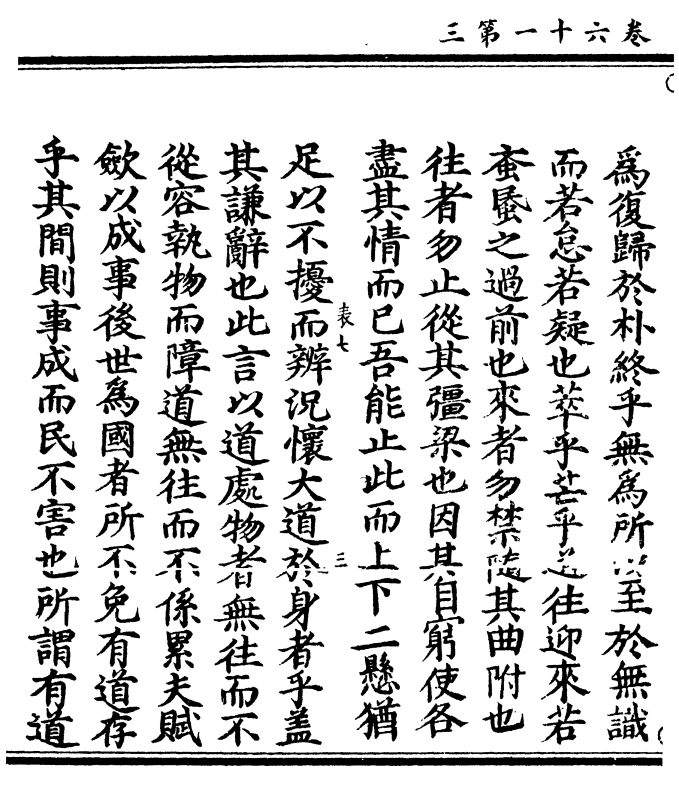 卷六十一第三
爲復歸於朴終乎無爲所以至於無識
而若怠若疑也萃乎芒乎送往迎來若
蚉䖟之過前也來者勿禁隨其曲附也
往者勿止從其彊梁也因其自窮使各
盡其情而已吾能止此而上下二懸猶
足以不擾而辨況懷大道於身者乎盖
其謙辭也此言以道處物者無往而不
從容執物而障道無往而不係累夫賦
歛以成事後世爲國者所不免有道存
乎其間則事成而民不害也所謂有道
表七
三